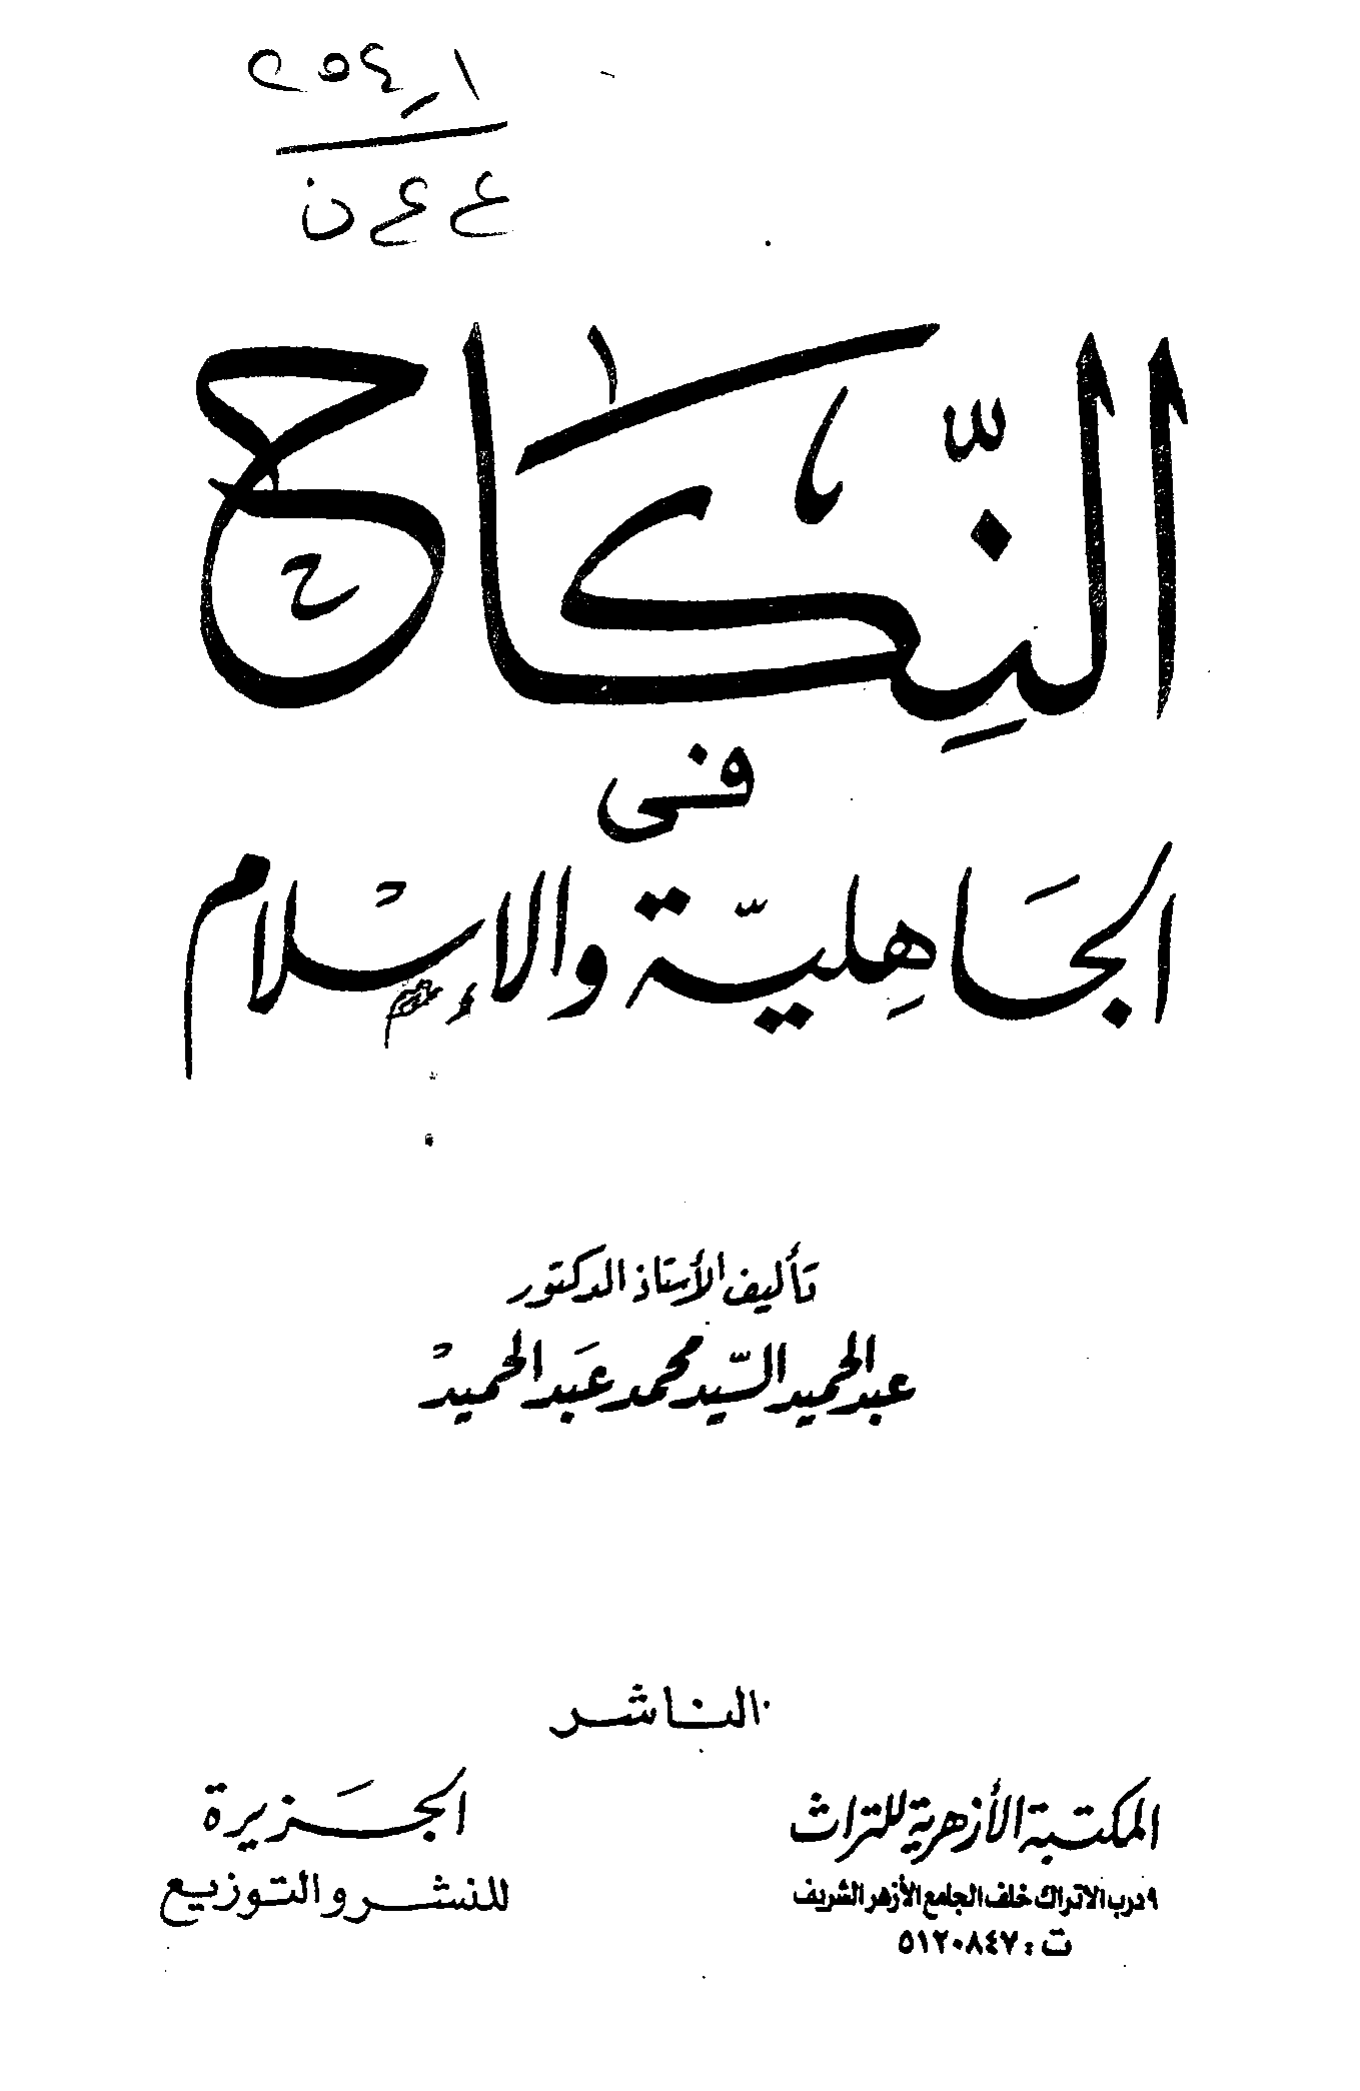 ع ع ن
النِّكَاح
فى
الجَاهِليّة والإسْلام
تأليف الأستاذ الدكتور
عبد الحميد السّيد محمد عَبد الحميدْ
الناشر
المكتبة الأزهرية للتراث
٩ درب الاتراك خلف الجامع الأزهر الشريف
ت : ٥١٢٠٨٤٧
الجَزيرة
للنشر والتوزيع